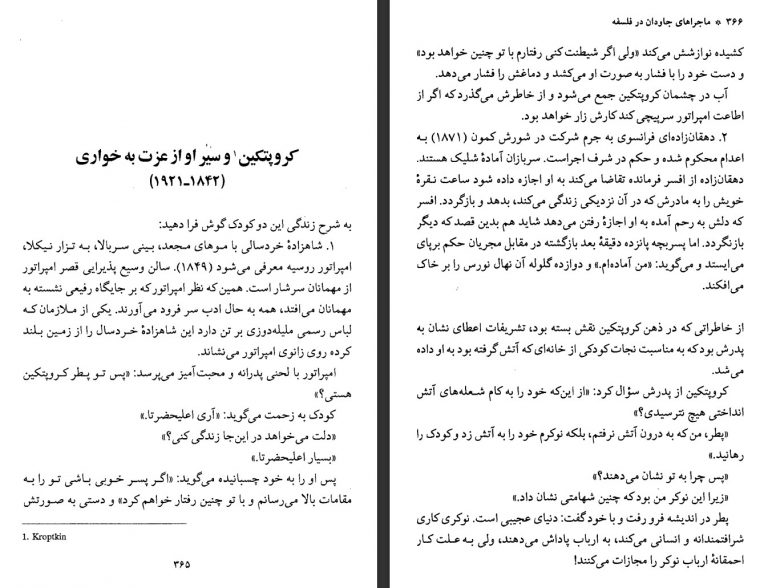 کروپتکین۱ و سیر او از عزت به خواری
(۱۸۴۲ـ۱۹۲۱)
به شرح زندگی این دو کودک گوش فرا دهید:
۱. شاهزادهٔ خردسالی با موهای مجعد، بینی سربالا، به تزار نیکلا،
امپراتور روسیه معرفی می‌شود (۱۸۴۹). سالن وسیع پذیرایی قصر امپراتور
از مهمانان سرشار است. همین که نظر امپراتور که بر جایگاه رفیعی نشسته به
مهمانان می‌افتد، همه به حال ادب سر فرود می‌آورند. یکی از ملازمان که
لباس رسمی ملیله‌دوزی بر تن دارد این شاهزادهٔ خردسال را از زمین بلند
کرده روی زانوی امپراتور می‌نشاند.
امپراتور با لحنی پدرانه و محبت‌آمیز می‌پرسد: «پس تو پطر کروپتکین
هستی؟»
کودک به زحمت می‌گوید: «آری اعلیحضرتا.»
«دلت می‌خواهد در این‌جا زندگی کنی؟»
«بسیار اعلیحضرتا.»
پس او را به خود چسبانیده می‌گوید: «اگر پسر خوبی باشی تو را به
مقامات بالا می‌رسانم و با تو چنین رفتار خواهم کرد» و دستی به صورتش
1. Kroptkin
۳۶۵
۳۶۶ * ماجراهای جاودان در فلسفه
کشیده نوازشش می‌کند «ولی اگر شیطنت کنی رفتارم با تو چنین خواهد بود»
و دست خود را با فشار به صورت او می‌کشد و دماغش را فشار می‌دهد.
آب در چشمان کروپتکین جمع می‌شود و از خاطرش می‌گذرد که اگر از
اطاعت امپراتور سرپیچی کند کارش زار خواهد بود.
۲. دهقان‌زاده‌ای فرانسوی به جرم شرکت در شورش کمون (۱۸۷۱) به
اعدام محکوم شده و حکم در شرف اجراست. سربازان آمادهٔ شلیک هستند.
دهقان‌زاده از افسر فرمانده تقاضا می‌کند به او اجازه داده شود ساعت نقرهٔ
خویش را به مادرش که در آن نزدیکی زندگی می‌کند، بدهد و بازگردد. افسر
که دلش به رحم آمده به او اجازهٔ رفتن می‌دهد شاید هم بدین قصد که دیگر
بازنگردد. اما پسربچه پانزده دقیقهٔ بعد بازگشته در مقابل مجریان حکم برپای
می‌ایستد و می‌گوید: «من آماده‌ام.» و دوازده گلوله آن نهال نورس را بر خاک
می‌افکند.
از خاطراتی که در ذهن کروپتکین نقش بسته بود، تشریفات اعطای نشان به
پدرش بود که به مناسبت نجات کودکی از خانه‌ای که آتش گرفته بود به او داده
می‌شد.
کروپتکین از پدرش سؤال کرد: «از این‌که خود را به کام شعله‌های آتش
انداختی هیچ نترسیدی؟»
«پطر، من که به درون آتش نرفتم، بلکه نوکرم خود را به آتش زد و کودک را
رهانید.»
«پس چرا به تو نشان می‌دهند؟»
«زیرا این نوکر من بود که چنین شهامتی نشان داد.»
پطر در اندیشه فرو رفت و با خود گفت: دنیای عجیبی است. نوکری کاری
شرافتمندانه و انسانی می‌کند، به ارباب پاداش می‌دهند، ولی به علت کار
احمقانهٔ ارباب نوکر را مجازات می‌کنند!